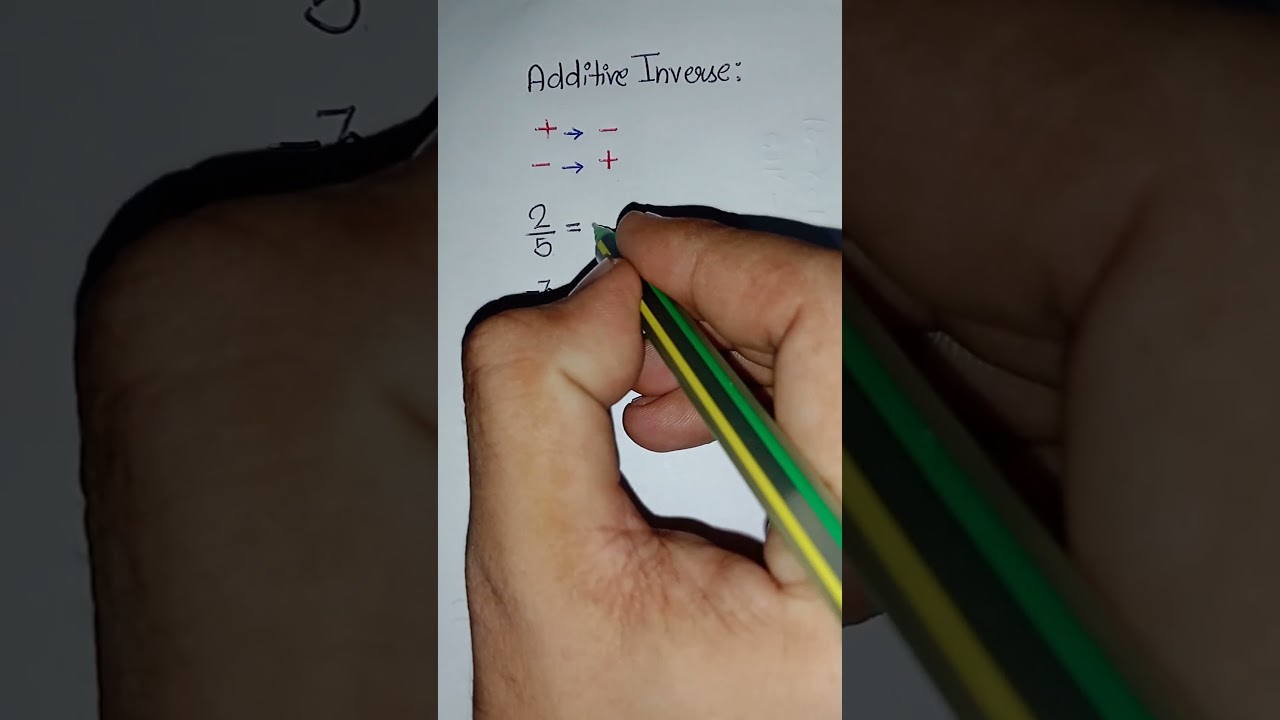 Additive Inverse:
+ → -
- → +
2/5 =